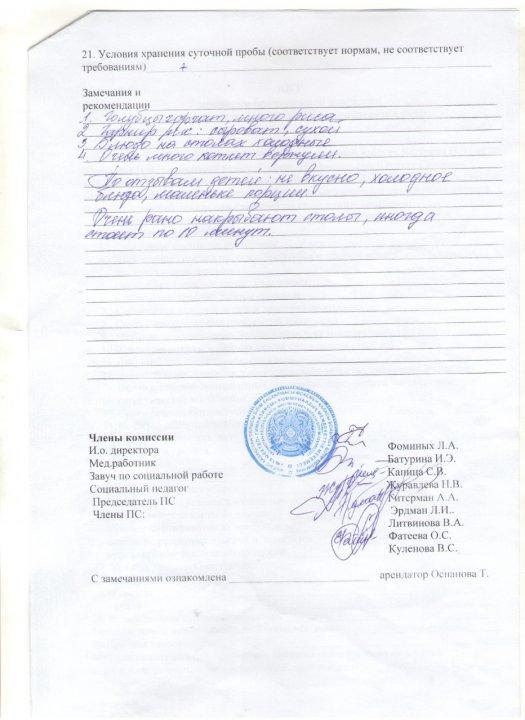 21. Условия хранения суточной пробы (соответствует нормам, не соответствует
требованиям) +
Замечания и
рекомендации
1. Голубцы горчат, много риса.
2. Гарнир рис: сыроват, сухой
3. Блюдо на столах холодные
4. Очень много котлет вернули.
По отзывам детей: не вкусно, холодное
блюда, маленькие порции
Очень рано накрывают столы, иногда
стоит по 10 минут.
Члены комиссии
И.о. директора Фоминых Л.А.
Мед.работник Батурина И.Э.
Завуч по социальной работе Капица С.В.
Социальный педагог Журавлева Н.В.
Председатель ПС Гитерман А.А.
Члены ПС: Эрдман Л.И..
Литвинова В.А.
Фатеева О.С.
Куленова В.С.
С замечаниями ознакомлена арендатор Оспанова Т.